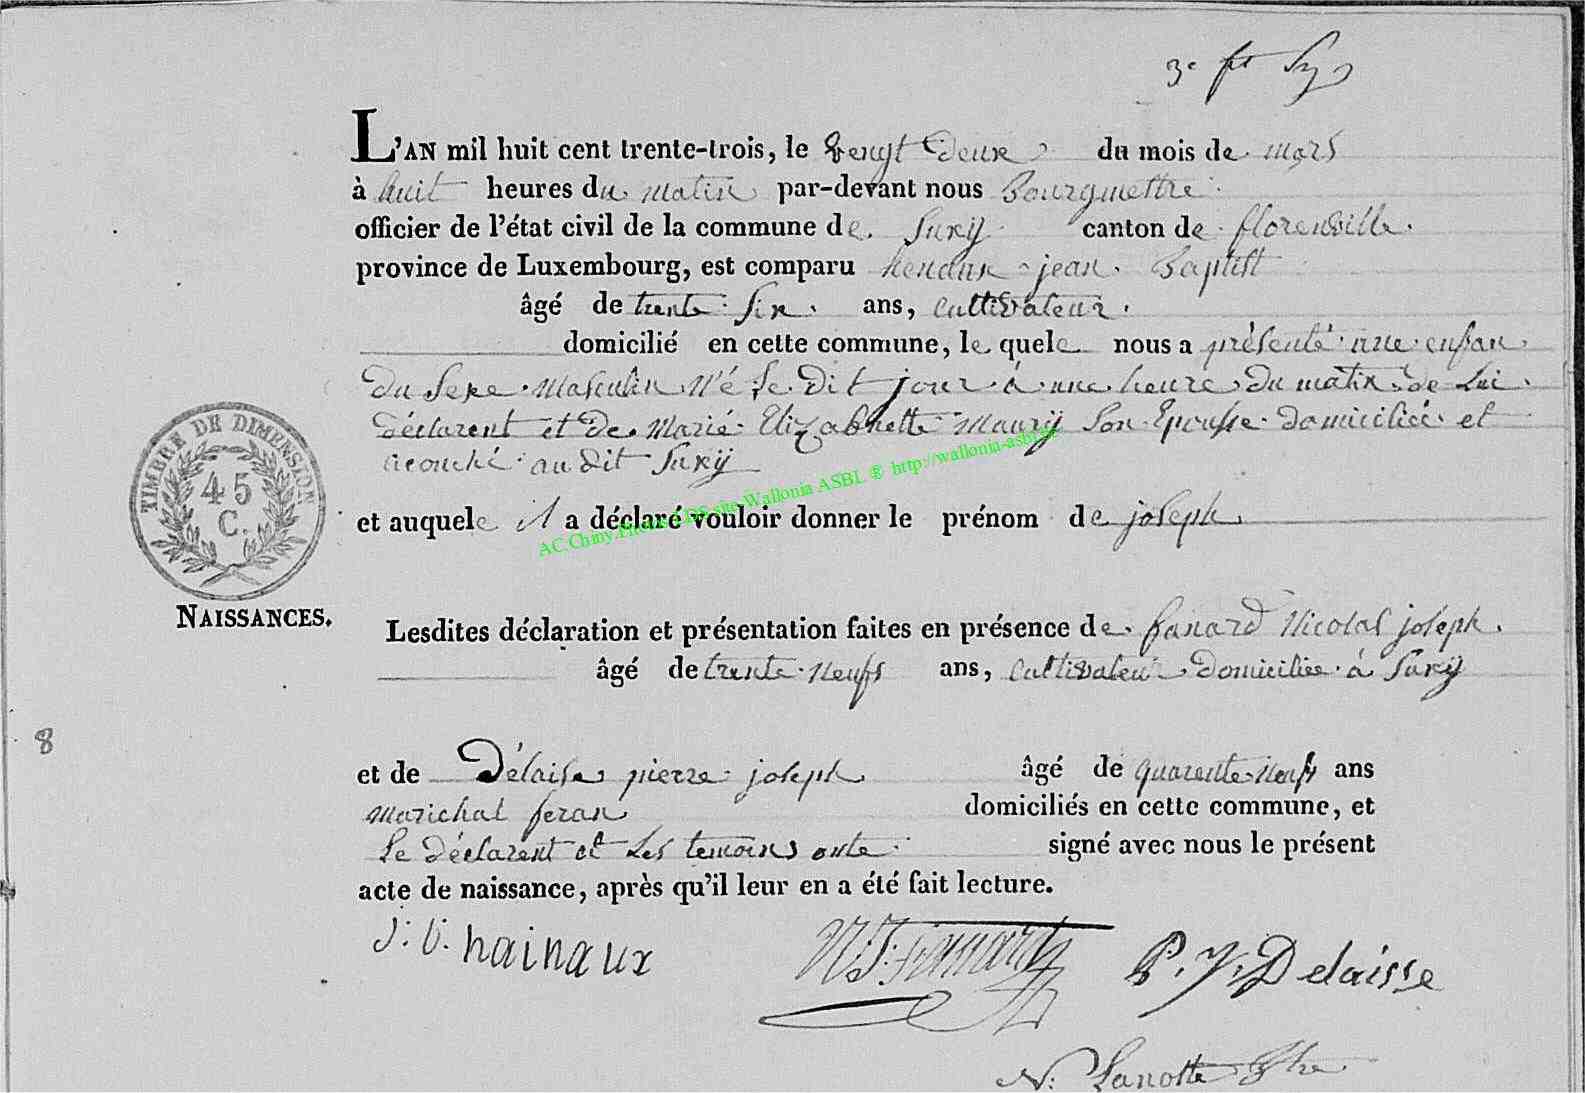 3e ft
L'AN mil huit cent trente-trois, le vengt deux du mois de mars
à huit heures du matin par-devant nous Bourgmettre
officier de l'état civil de la commune de Suxÿ canton de florenville
province de Luxembourg, est comparu henaux jean Baptist
âgé de trente Six ans, cultivateur
domicilié en cette commune, le quele nous a présenté une enfan
Du Sexe Masculin Né Le Dit jour à une heure Du matin de Lui
déclarent et De Marié Elizabhette Maurÿ Son Epousse domiciliéé et
acouché au dit Suxÿ
et auquele il a déclaré vouloir donner le prénom de joseph
AC.Chiny.Photos CDS site Wallonia ASBL ® http://wallonia-asbl.be
TIMBRE DE DIMENSION
45
C.
NAISSANCES.
Lesdites déclaration et présentation faites en présence de fanard Nicolas joseph
âgé de trente Neufs ans, Cultivateur Domiciliée à Suxÿ
8
et de Délaise pierre joseph âgé de quarente Neufs ans
Marichal feran domiciliés en cette commune, et
Le déclarent et Les temoins onte signé avec nous le présent
acte de naissance, après qu'il leur en a été fait lecture.
J: B: hainaux N J: Fanard P. J. Delaisse
N: Lanotte